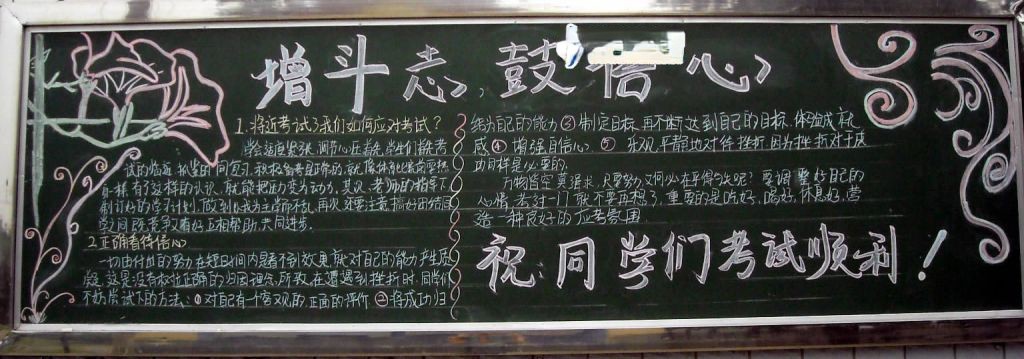 增斗志，鼓信心
1.将近考试了我们如何应对考试？
学会适度紧张，调节心
正确
有了这样的认识，就能把压力变为动力，其次，老师的指导下
制订好的学习计划，做到以我为主学而不乱，再次还要注意搞好团结同
学之间既竞争又有好互相帮助，共同进步。
2.正确看待信心
一切由付出的努力在短时间内是看不到效果就对自己的能力产生质
疑，这是没有树立正确的归因理念，所致，在遭遇到挫折时，同学们
不妨尝试下的方法：①对自己有个客观的正面的评价 ②将成功归
结为自己的能力③制定目标，再不断达到自己的目标，体验成就
感④增强自信心。⑤乐观、平静地对待挫折，因为挫折对于成
功同样是必要的。
万物皆空莫强求，只要努力又何必在乎得与失呢？要调整好自己的
心情，考过一门就不要再想了，重要的是吃好，喝好，休息好，营
造一种良好的应考氛围
祝：同学们考试顺利！